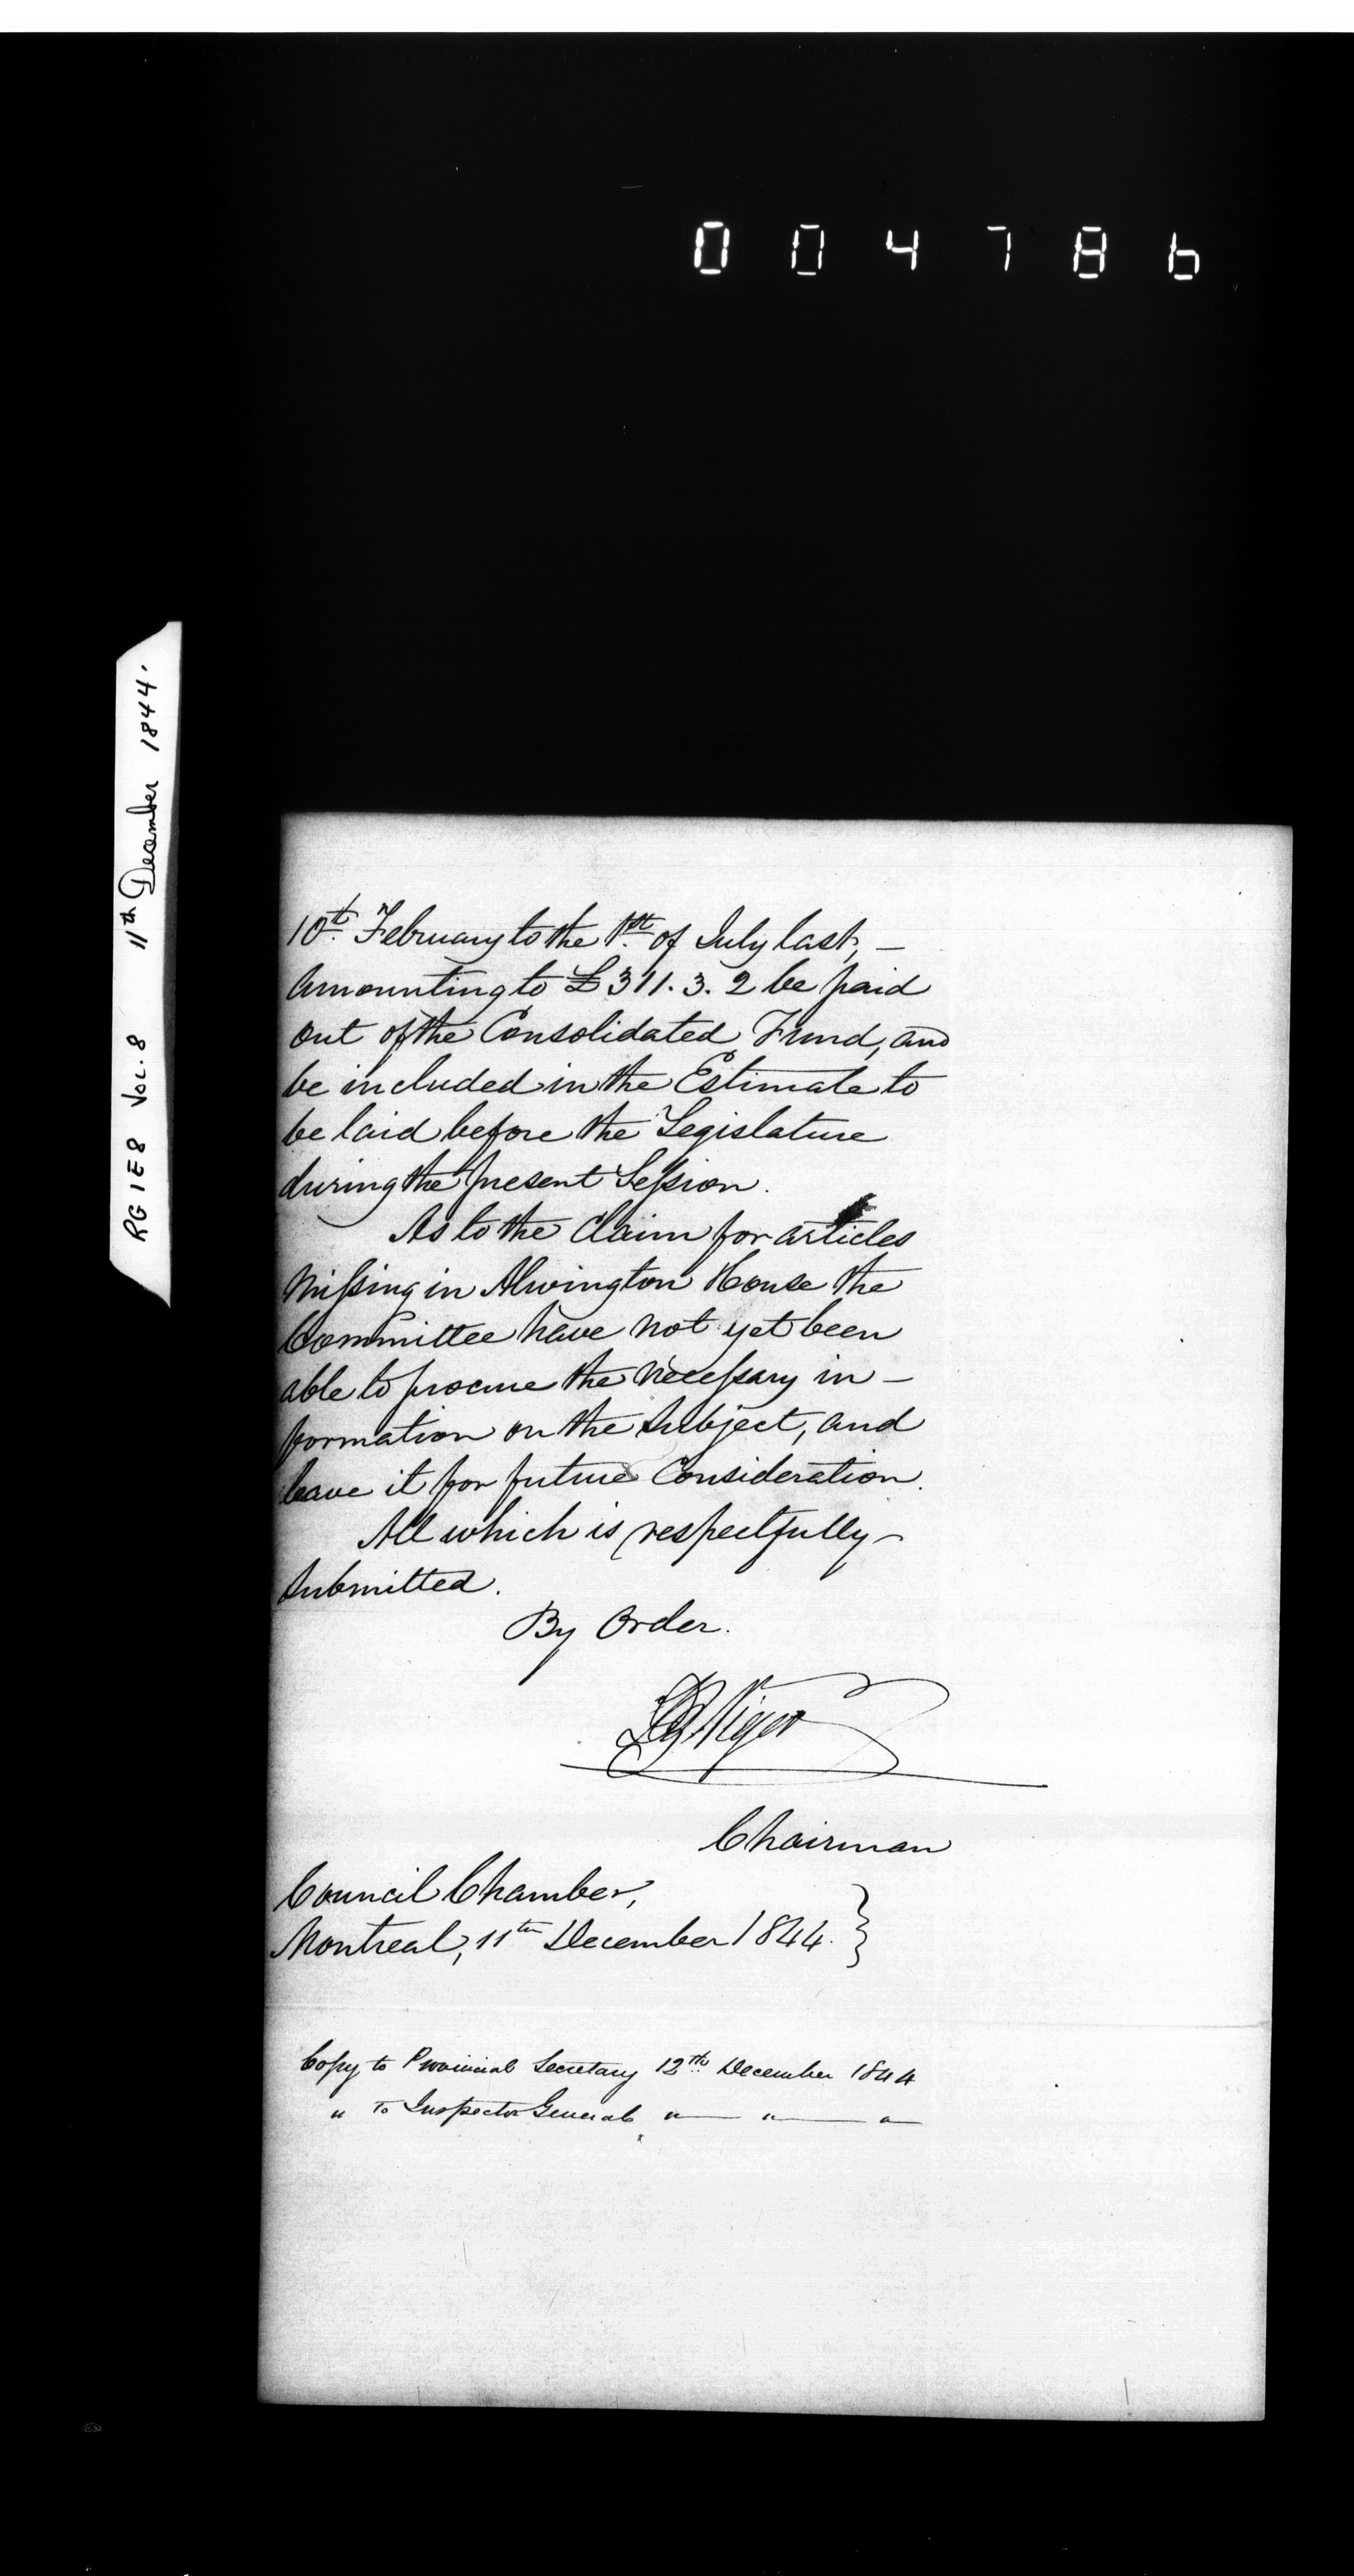 004786
RG 1 E 8 Vol. 8 11th December 1844.
10th. February to the 1st. of July last, —
amounting to £311. 3. 2 be paid
out of the Consolidated Fund, and
be included in the Estimate to
be laid before the Legislature
during the present Session.
As to the Claim for articles
missing in Alwington House the
Committee have not yet been
able to procure the necessary in-
formation on the subject, and
leave it for future Consideration.
All which is respectfully
submitted.
By Order.
DB Viger
Chairman
Council Chamber,
Montreal, 11th December 1844. }
Copy to Provincial Secretary 12th December 1844
" To Inspector General " — " — " —